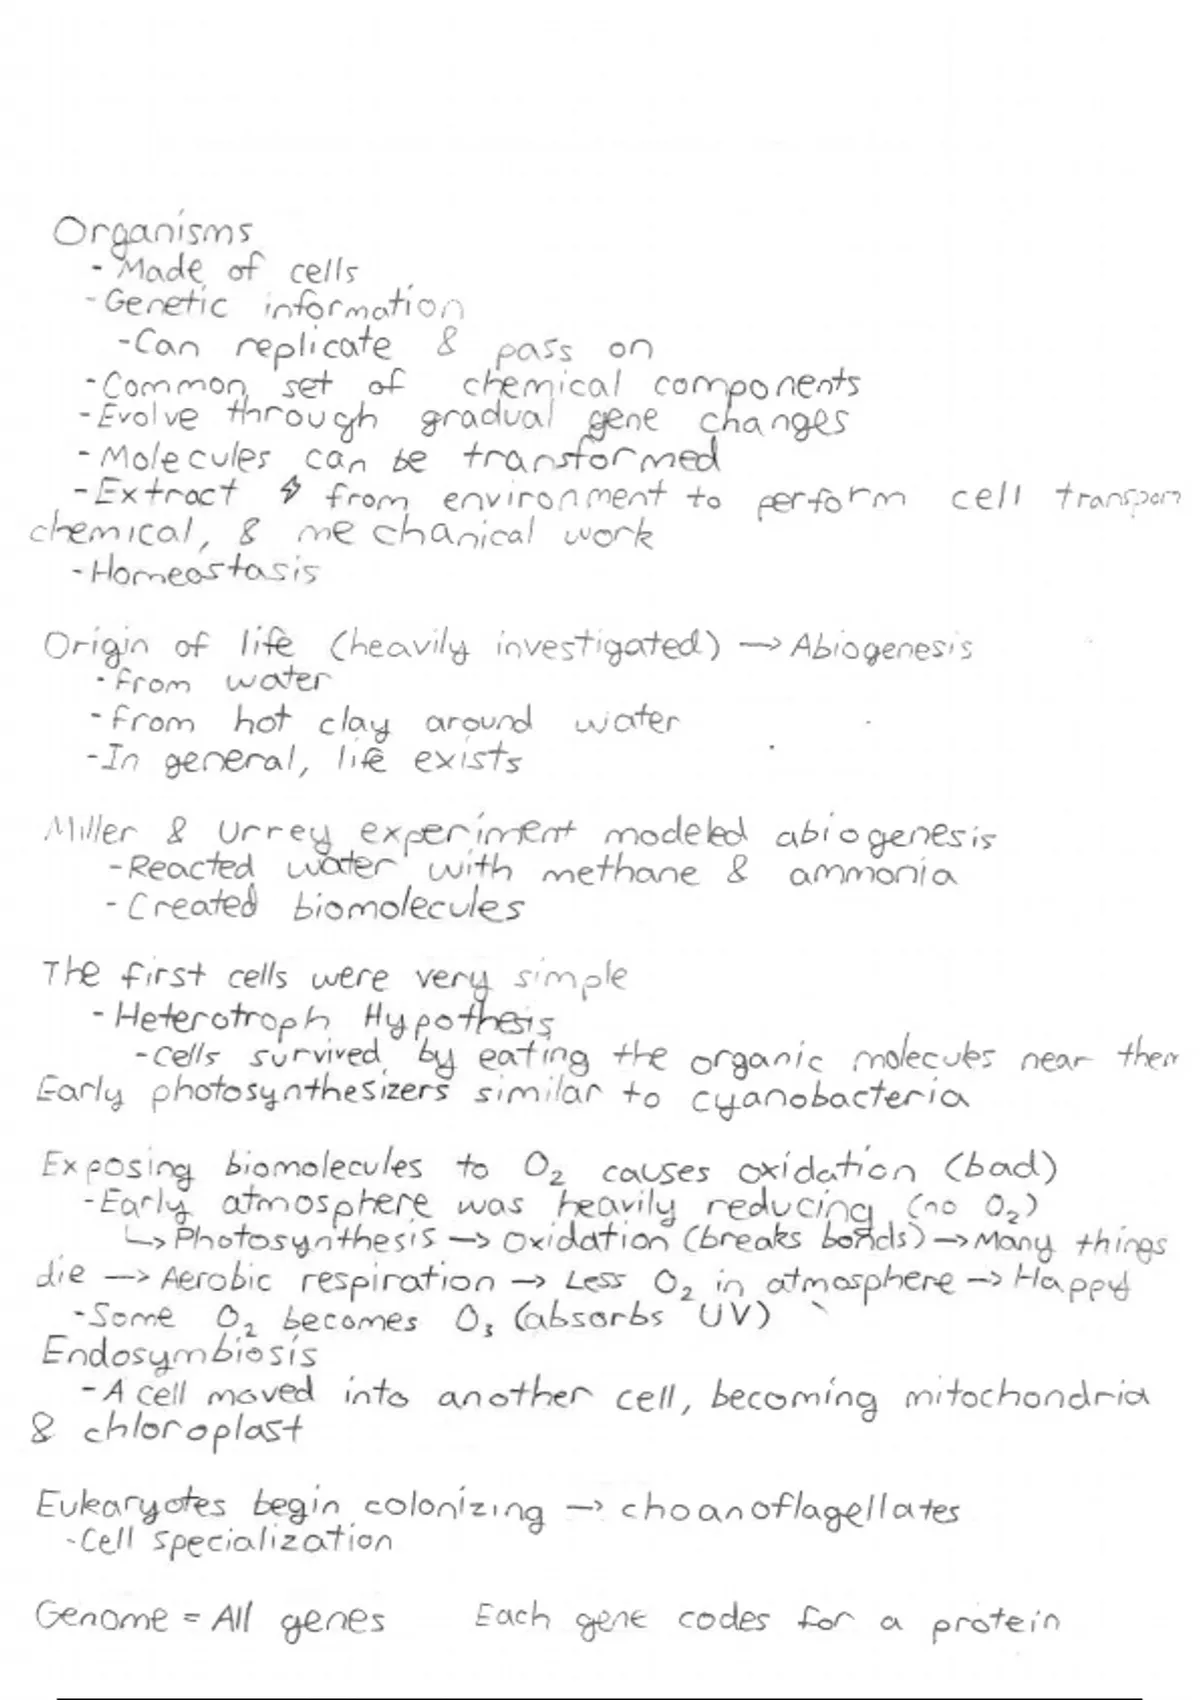 Organisms
- Made of cells
- Genetic information
- Can replicate & pass on
- Common set of chemical components
- Evolve through gradual gene changes
- Molecules can be transformed
- Extract ⚡ from environment to perform cell transport
chemical, & mechanical work
- Homeostasis
Origin of life (heavily investigated) → Abiogenesis
- From water
- From hot clay around water
- In general, life exists
Miller & Urrey experiment modeled abiogenesis
- Reacted water with methane & ammonia
- Created biomolecules
The first cells were very simple
- Heterotroph Hypothesis
- Cells survived by eating the organic molecules near them
Early photosynthesizers similar to cyanobacteria
Exposing biomolecules to O₂ causes oxidation (bad)
- Early atmosphere was heavily reducing (no O₂)
↳ Photosynthesis → Oxidation (breaks bonds) → Many things
die → Aerobic respiration → Less O₂ in atmosphere → Happy
- Some O₂ becomes O₃ (absorbs UV)
Endosymbiosis
- A cell moved into another cell, becoming mitochondria
& chloroplast
Eukaryotes begin colonizing → choanoflagellates
- Cell specialization
Genome = All genes Each gene codes for a protein